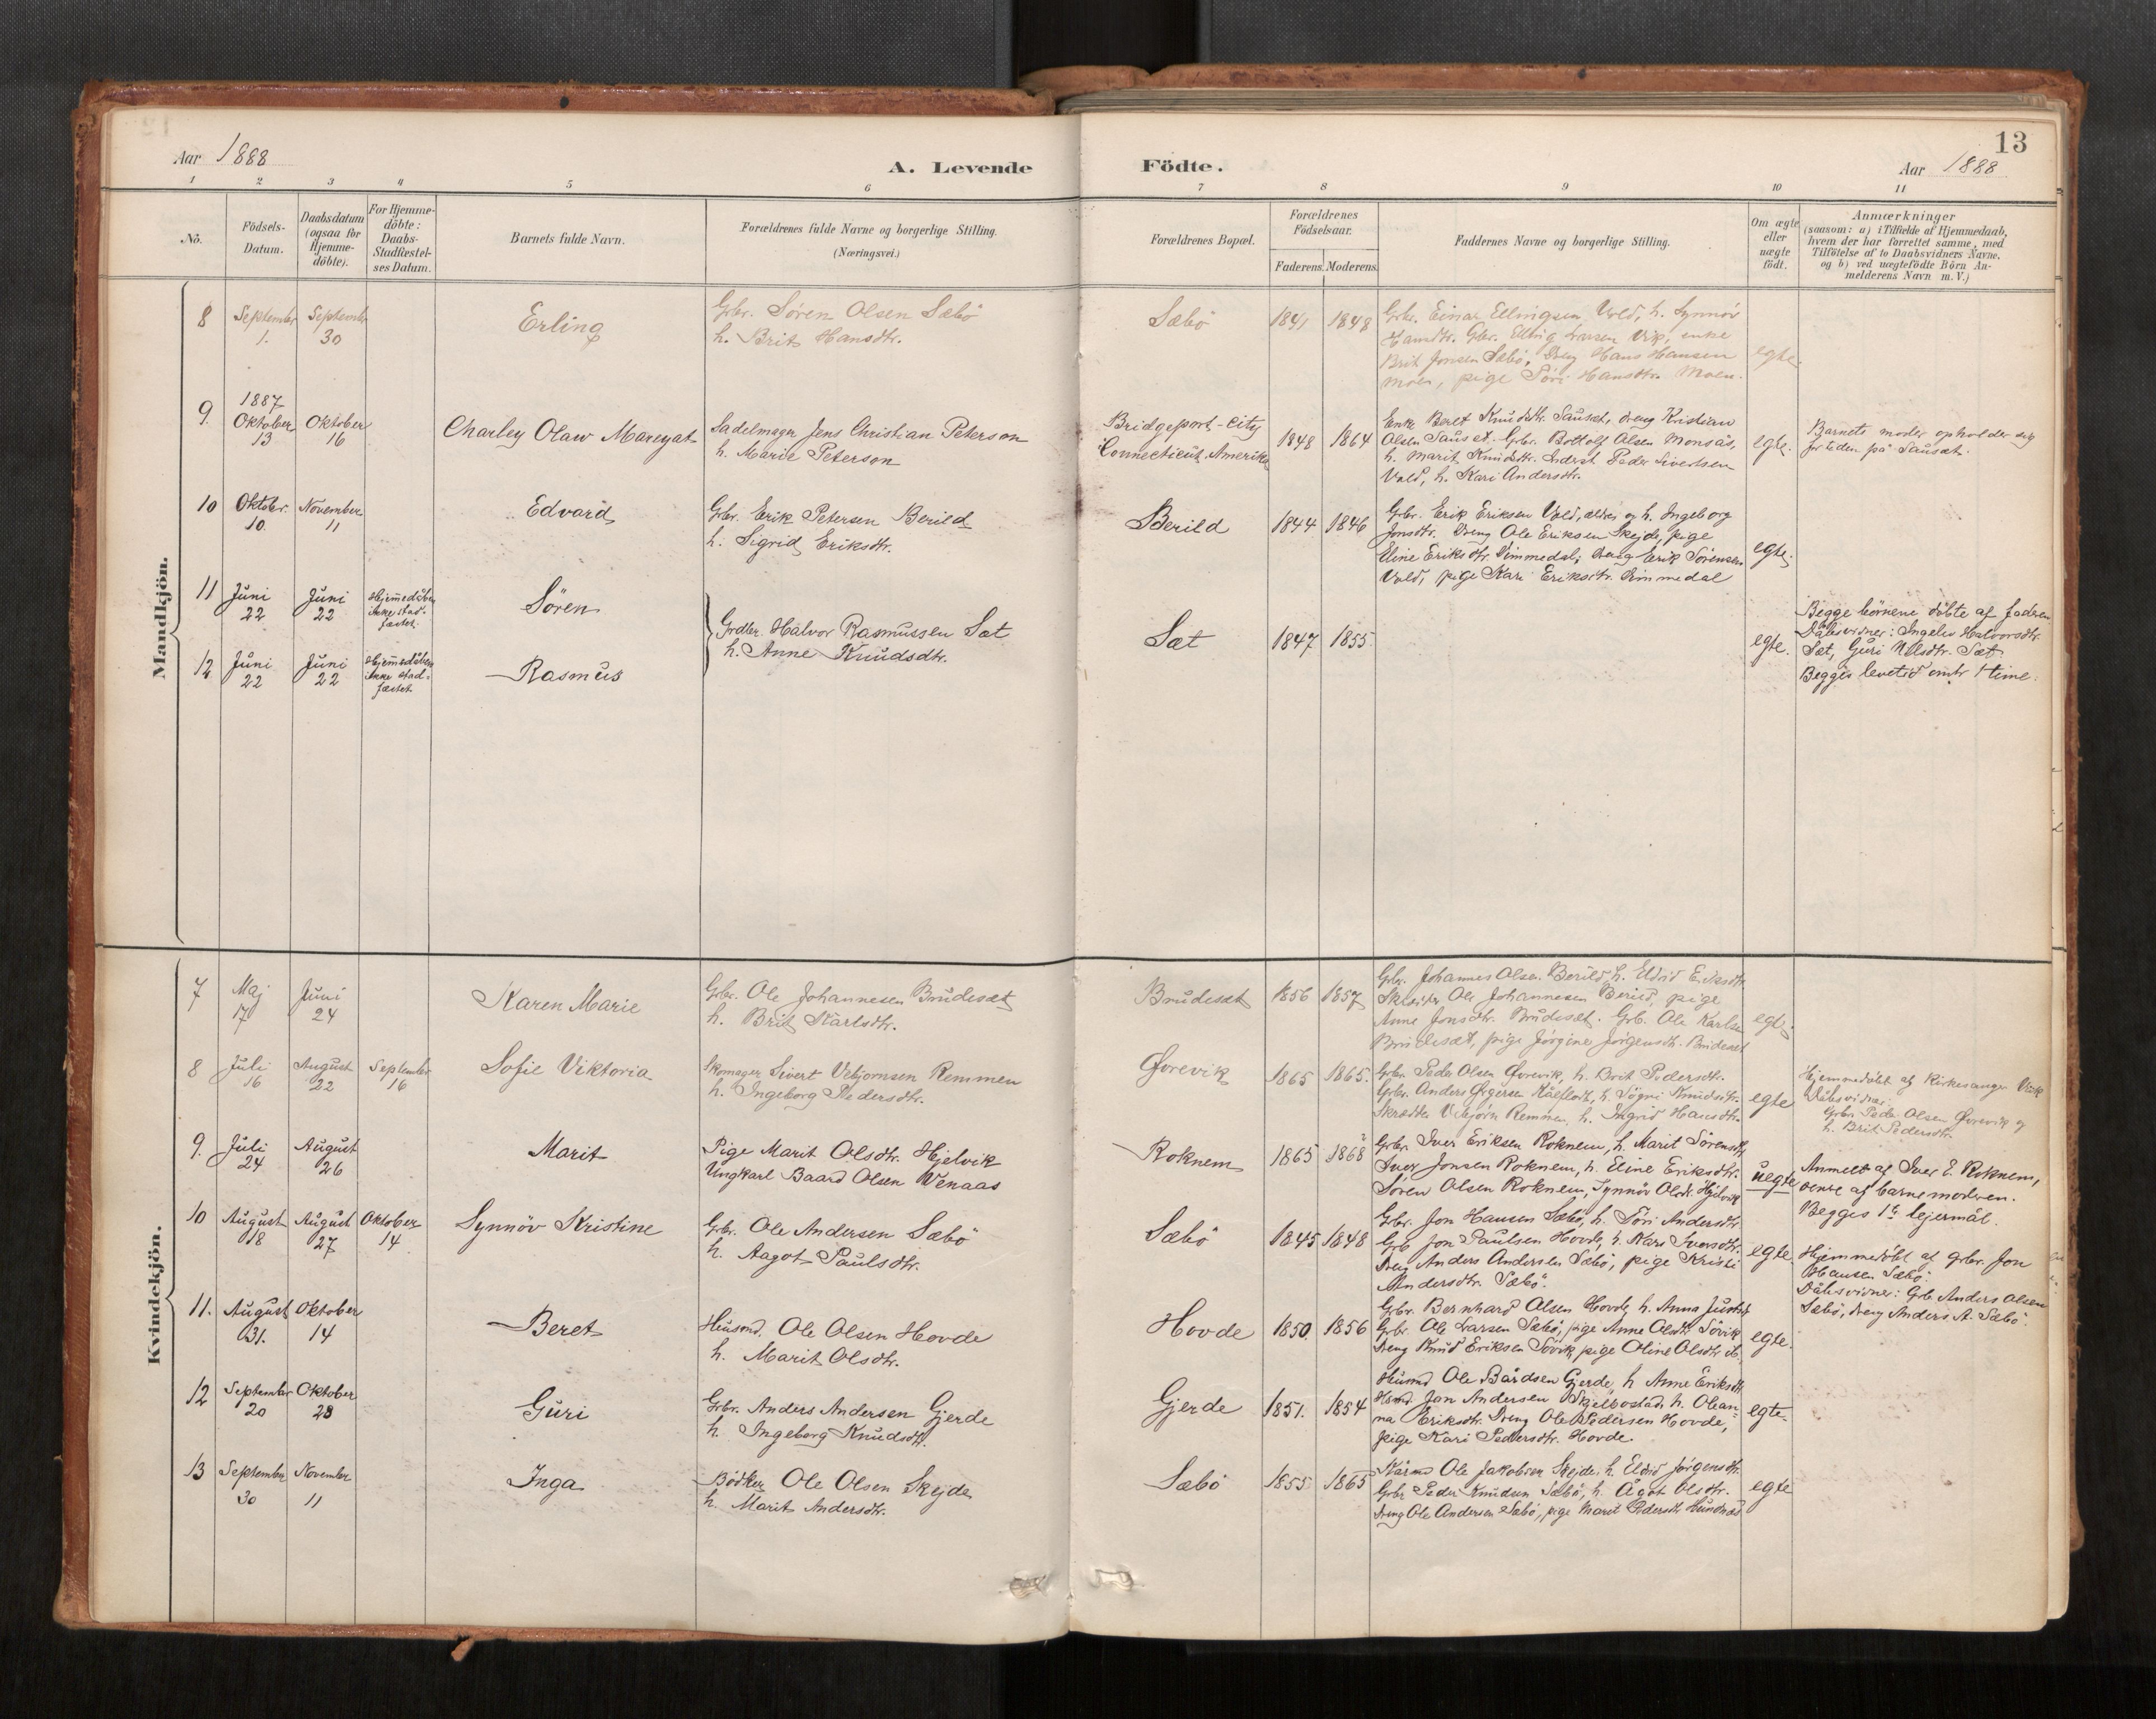 Aar 1888
A. Levende
Födte.
13
Aar 1888
1 2 3 4 5 6 7 8 9 10 11
No.
Födsels-
Datum.
Daabsdatum
(ogsaa for
Hjemme-
döbte).
For Hjemme-
döbte:
Daabs-
Stadfæstel-
ses Datum.
Barnets fulde Navn.
Forældrenes fulde Navne og borgerlige Stilling.
(Næringsvei.)
Forældrenes Bopæl.
Forældrenes
Födselsaar.
Faderens. Moderens.
Faddernes Navne og borgerlige Stilling.
Om ægte
eller
uægte
födt.
Anmærkninger
(saasom: a) i Tilfælde af Hjemmedaab,
hvem der har forrettet samme, med
Tilföielse af to Daabsvidners Navne,
og b) ved uægtefödte Börn An-
melderens Navn m. V.)
Mandkjön.
8
September
1.
September
30
Erling
Grbr. Søren Olsen Sæbö
h. Brit Hansdtr.
Sæbö
1841
1848
Grbr. Einar Ellingsen Vold, h. Synnöv
Hansdtr. Gbr. Elling Larsen Vik, enke
Brit Jonsen Sæbö, Dreng Hans Hansen
Moen, pige Söri Hansdtr. Moen.
egte.
9.
1887
Oktober
13
Oktober
16
Charley Olaw Mareyat
Sadelmager Jens Christian Peterson
h. Marie Peterson
Bridgeport-City
Connecticut, Amerika
1848
1864
Enke Beret Knudsdtr. Sausæt, dreng Kristian
Olsen Sausæt. Grbr. Bottolf Olsen Monsås,
h. Marit Knudsdtr. Inderst Peder Sivertsen
Vold, h. Kari Andersdtr.
egte.
Barnets moder opholder sig
for tiden på Sausæt.
10
Oktober
10.
November
11
Edvard
Grbr. Erik Petersen Berild
h. Sigrid Eriksdtr.
Berild
1844
1846
Grbr. Erik Eriksen Vold, ældre og h. Ingeborg
Jonsdtr. Dreng Ole Eriksen Skejde, pige
Eline Eriksdtr. Dimmedal, dreng Erik Sörensen
Vold, pige Kari Eriksdtr. Dimmedal
egte.
11
Juni
22
Juni
22
Hjemmedöben
ikke stad-
fæstet.
Sören
Grdbr. Halvor Rasmussen Sæt
h. Anne Knudsdtr.
Sæt
1847
1855
egte.
Begge börnene döbte af faderen
Dåbsvidner: Ingelev Halvorsdtr.
Sæt, Guri Nilsdtr. Sæt
Begges levetid omtr 1 time.
12
Juni
22
Juni
22
Hjemmedöben
ikke stad-
fæstet
Rasmus
Kvindekjön.
7
Maj
17
Juni
24
Karen Marie
Grbr. Ole Johannesen Brudesæt
h. Brit Karlsdtr.
Brudesæt
1856
1857
Grbr. Johannes Olsen Berild, h. Eldrid Eriksdtr.
Ole Johannesen Berild, pige
Anne Jonsdtr. Brudesæt. Grb. Ole Karlsen
Brudesæt, pige Jörgine Jörgensdtr. Brudesæt
egte.
8
Juli
16
August
22
September
16
Sofie Viktoria
Skomager Sivert Vebjornsen Remmen
h. Ingeborg Pedersdtr.
Ørevik
1865
1865.
Grbr. Peder Olsen Ørevik, h. Brit Pedersdtr.
Grbr. Anders h. Sögni Knudsdtr.
Skrædder Vebjörn Remmen, h. Ingrid Hansdtr.
egte
Hjemmedöbt af Kirkesanger Vik
Dåbsvidner:
Grbr. Peder Olsen Ørevik og
h. Brit Pedersdtr.
9.
Juli
24
August
26
Marit
Pige Marit Olsdtr. Hjelvik
Ungkarl Baard Olsen Venaas
Roknem
1865
1868
Grbr. Iver Eriksen Roknem, h. Marit Sörensdtr.
Iver Jonsen Roknem, h. Eline Eriksdtr.
Sören Olsen Roknem, Synnöv Olsdtr. Hjelvik
uegte
Anmeldt af Iver E. Roknem,
verge af barnemoderen.
Begges 1te lejermål.
10
August
18
August
27
Oktober
14
Synnöv Kristine
Grbr. Ole Andersen Sæbö
h. Aagot Paulsdtr.
Sæbö
1845
1848
Grbr. Jon Hansen Sæbö, h. Söri Andersdtr.
Grb Jon Paulsen Hovde, h. Kari Iversdtr.
Dreng Anders Andersen Sæbö, pige Kristi
Andersdtr. Sæbö.
egte.
Hjemmedöbt af grbr. Jon
Hansen Sæbö.
Dåbsvidner: Grb Anders Olsen
Sæbö, dreng Anders A. Sæbö.
11.
August
31.
Oktober
14
Beret
Husmd. Ole Olsen Hovde
h. Marit Olsdtr.
Hovde
1850.
1856
Grbr. Bernhard Olsen Hovde, h. Anna
Grbr. Ole Larsen Sæbö, pige Anne Olsdtr Sövik
Dreng Knud Eriksen Sövik, pige Oline Olsdtr ib.
egte.
12
September
20
Oktober
28
Guri
Grbr. Anders Andersen Gjerde
h. Ingeborg Knudsdtr.
Gjerde
1851.
1854
Husmd Ole Bårdsen Gjerde, h Anne Eriksdtr
Hsmd. Jon Andersen Skjelbostad, h. Olean-
na Eriksdtr. Dreng Ole Pedersen Hovde,
pige Kari Pedersdtr. Hovde.
egte.
13
September
30
November
11
Inga
Bödker Ole Olsen Skejde
h. Marit Andersdtr.
Sæbö
1855
1865
Kårmd Ole Jakobsen Skejde, h. Eldrid Jörgensdtr.
Grbr Peder Knudsen Sæbö, h. Ågot Olsdtr.
Dreng Ole Andersen Sæbö, pige Marit Pedersdtr
egte